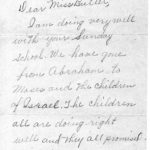 Dear Miss Butler,
I am doing very well
with your Sunday
school. We have gone
from Abraham to
Moses and the Children
of Israel. The children
all are doing right
well and they all promised